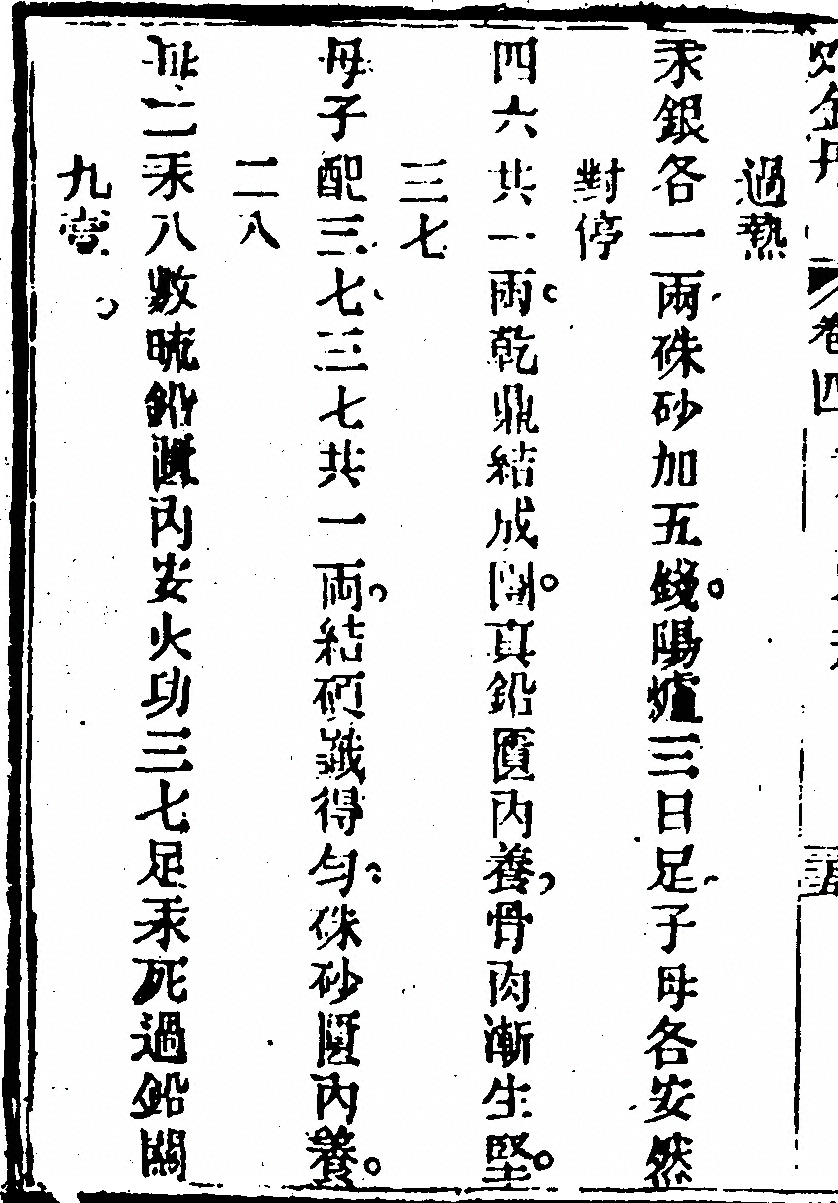 過熱
汞銀各一兩硃砂加五錢陽爐三日足子母各安然
對停
四六共一兩乾鼎結成團真鉛匱內養骨肉漸生堅
三七
母子配三七三七共一兩結硬纔得勻硃砂匱內養
二八
二汞八數硫鉛匱內安火功三七足汞死過鉛關
九壹
卷四